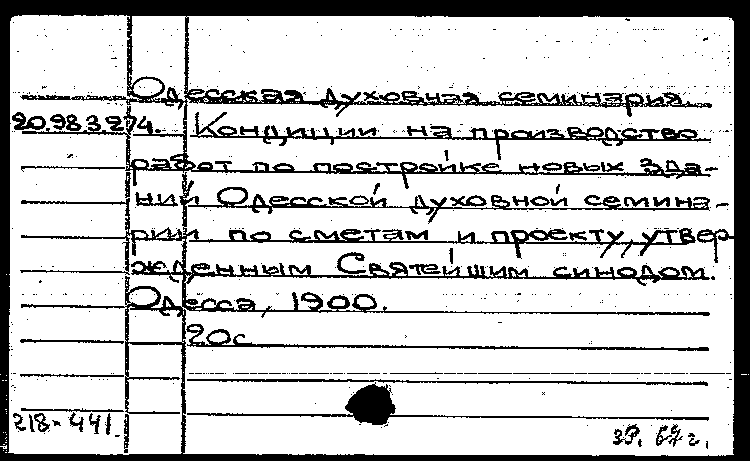 Одесская духовная семинария.
20.983.274. Кондиции на производство
работ по постройке новых зда-
ний Одесской духовной семина-
рии по сметам и проекту, утвер-
жденным Святейшим синодом.
Одесса, 1900.
20с
218-441.
67г.